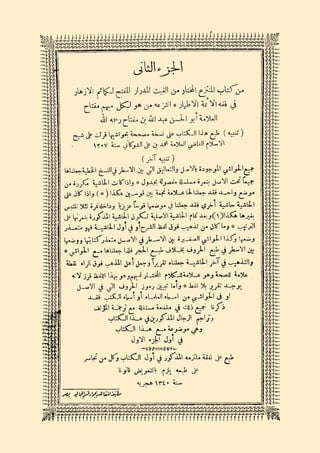 الجزء الثانى
من كتاب المنتزع المختار من الغيث المدرار المفتح لكمائم الازهار
فى فقه الائمة الاطهار * انتزعه من هو لكل مبهم مفتاح
العلامة أبو الحسن عبد الله بن مفتاح رحمه الله
(تنبيه) طبع هذا الكتاب على نسخة مصححة بحواشيها قرئت على شيخ
الاسلام القاضي العلامة محمد بن على الشوكاني سنة ١٢٠٧
(تنبيه آخر)
جميع الحواشي الموجودة بالاصل والتعاليق التى بين الاسطر فى النسخ الخطية جعلناها
جميعاً تحت الاصل بنمرة مسلسلة مفصولة بجدول * واذا كانت الحاشية مكررة من
موضع واحد فقد جعلنا لها علامة نجمة بين قوسين هكذا (*) واذا كان على
الحاشية حاشية أخرى فقد جعلنا فى موضعها قوساً عزيزيا وداخله نمرة لئلا تلتبس
بغيرها هكذا (١) وبعد تمام الحاشية الاصلية تكون الحاشية المذكورة بنمرتها على
الترتيب * وما كان من تذهيب فوق لفظ الشرح أو فى أول الحاشية فهو متعذر
وضعها وكذا الحواشي الصغيرة بين الاسطر فى الاصل متعذر كتابتها ووضعها
بين الاسطر فى طبع الحروف بخلاف طبع الحجر فلذا جعلناها مع الحواشي *
والتذهيب فى آخر الحاشية جعلناه تقريراً وجعل أهل المذهب فوق الراء نقطة
علامة للصحة وهو علامة للكلام المختار لهم وهو بهذا اللفظ قرز لا
يوجد تقرير بلا نقط * وأما تبيين رموز الحروف التى فى الاصل
او فى الحواشي من أسماء العلماء أو أسماء الكتب فقد
ذكرنا جميع ذلك فى مقدمة مستقلة مع ترجمة المؤلف
وتراجم الرجال المذكورين فى هذا الكتاب
وهى موضوعة مع هذا الكتاب
فى أول الجزء الاول
طبع على نفقة ملتزمه المذكور فى أول الكتاب وكل من تجاسر
على طبعه يلزم بالتعويض قانونا
سنة ١٣٤٠ هجريه